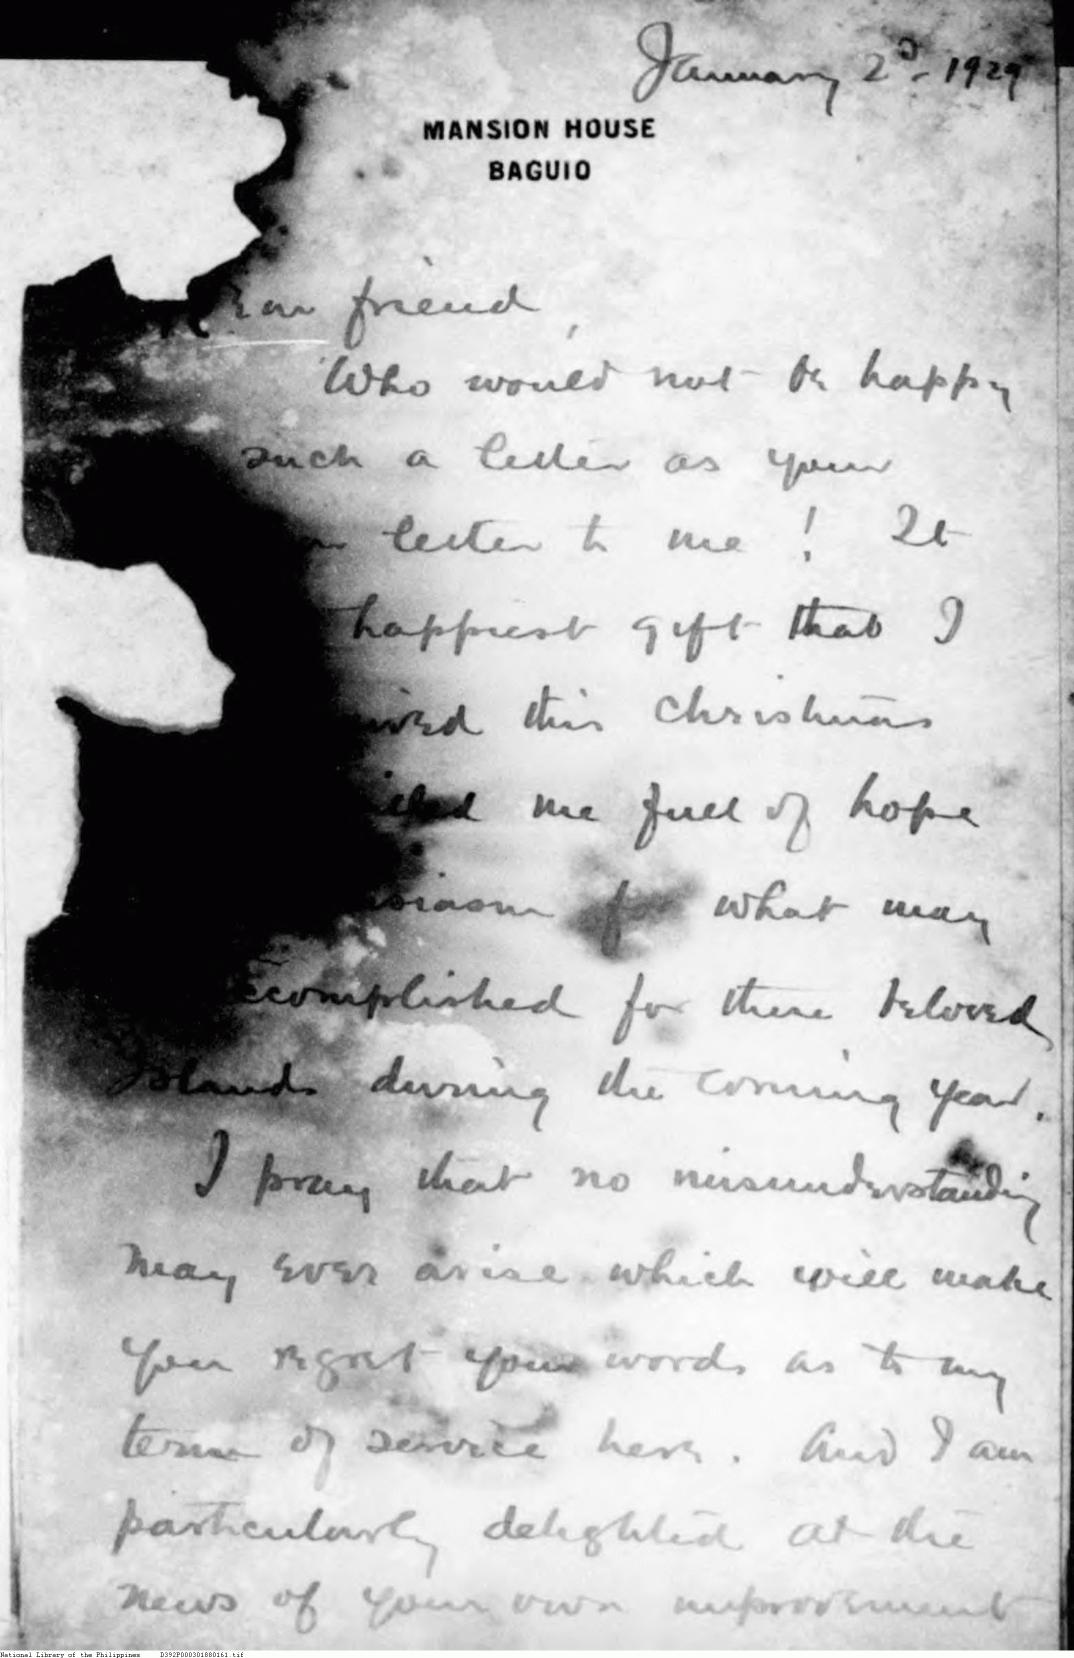 January 2d - 1929
MANSION HOUSE
BAGUIO
friend,
Who would not be happy
such a letter as your
letter to me! It
happiest gift that I
ived this Christmas
me full of hope
siasm for what may
ccomplished for these beloved
Islands during the coming year.
I pray that no misunderstanding
may ever arise which will make
you regret your words as to my
term of service here. And I am
particularly delighted at the
news of your own improvement
National Library of the Philippines D392P000301880161.tif